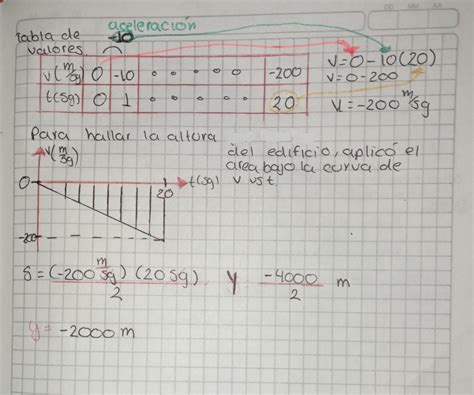 aceleración
Tabla de valores -10
v(m/sg) 0 -10 ° ° ° ° ° -200
t(sg) 0 1 ° ° ° ° ° 20
v=0-10(20)
v=0-200
v=-200 m/sg
Para hallar la altura del edificio, aplicó el
area bajo la curva de
v vs t.
v(m/sg)
0 t(sg)
20
-200
= (-200 m/sg) (20 sg) / 2 y -4000/2 m
y= -2000 m